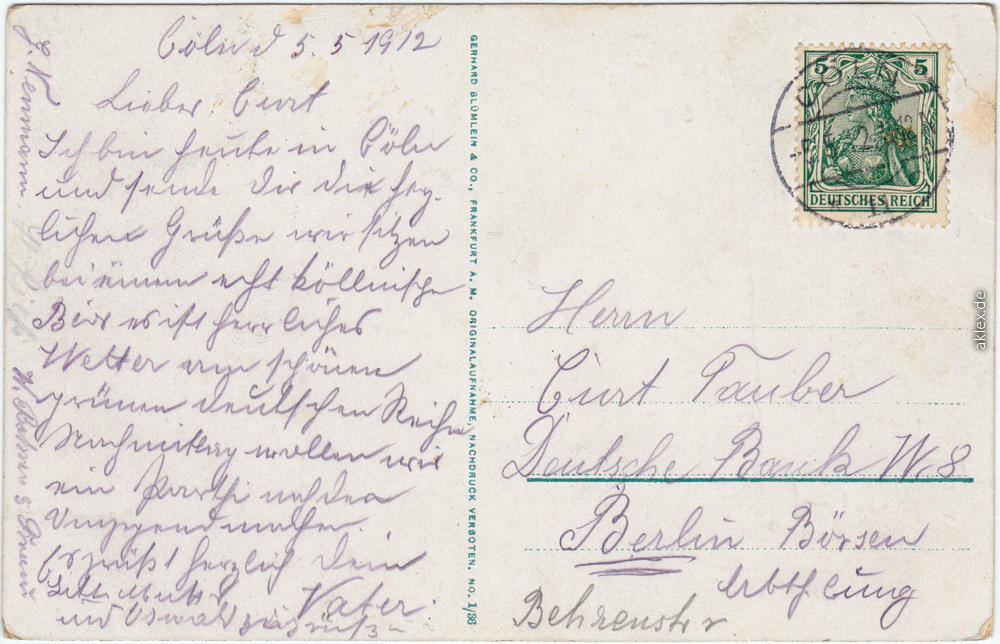 Cöln d 5. 5 1912
Lieber Curt
Ich bin heute in Cöln
und sende Dir die herz-
lichen Grüße wir sitzen
bei einem echt köllnische
Bier es ist herrliches
Wetter am schönen
grünen deutschen Rhein
Nachmittag wollen wir
ein Parthi nach der
Umgegend machen.
Grüßt herzlich Dein
Vater.
und Oswald
J. Nenmann.
GERHARD BLÜMLEIN & CO., FRANKFURT A. M. ORIGINALAUFNAHME, NACHDRUCK VERBOTEN. NO. 1/86
5 5
DEUTSCHES REICH
Herrn
Curt Tauber
Deutsche Bank W. 8
Berlin Börsen
Abtheilung
Behrenstr
aklex.de